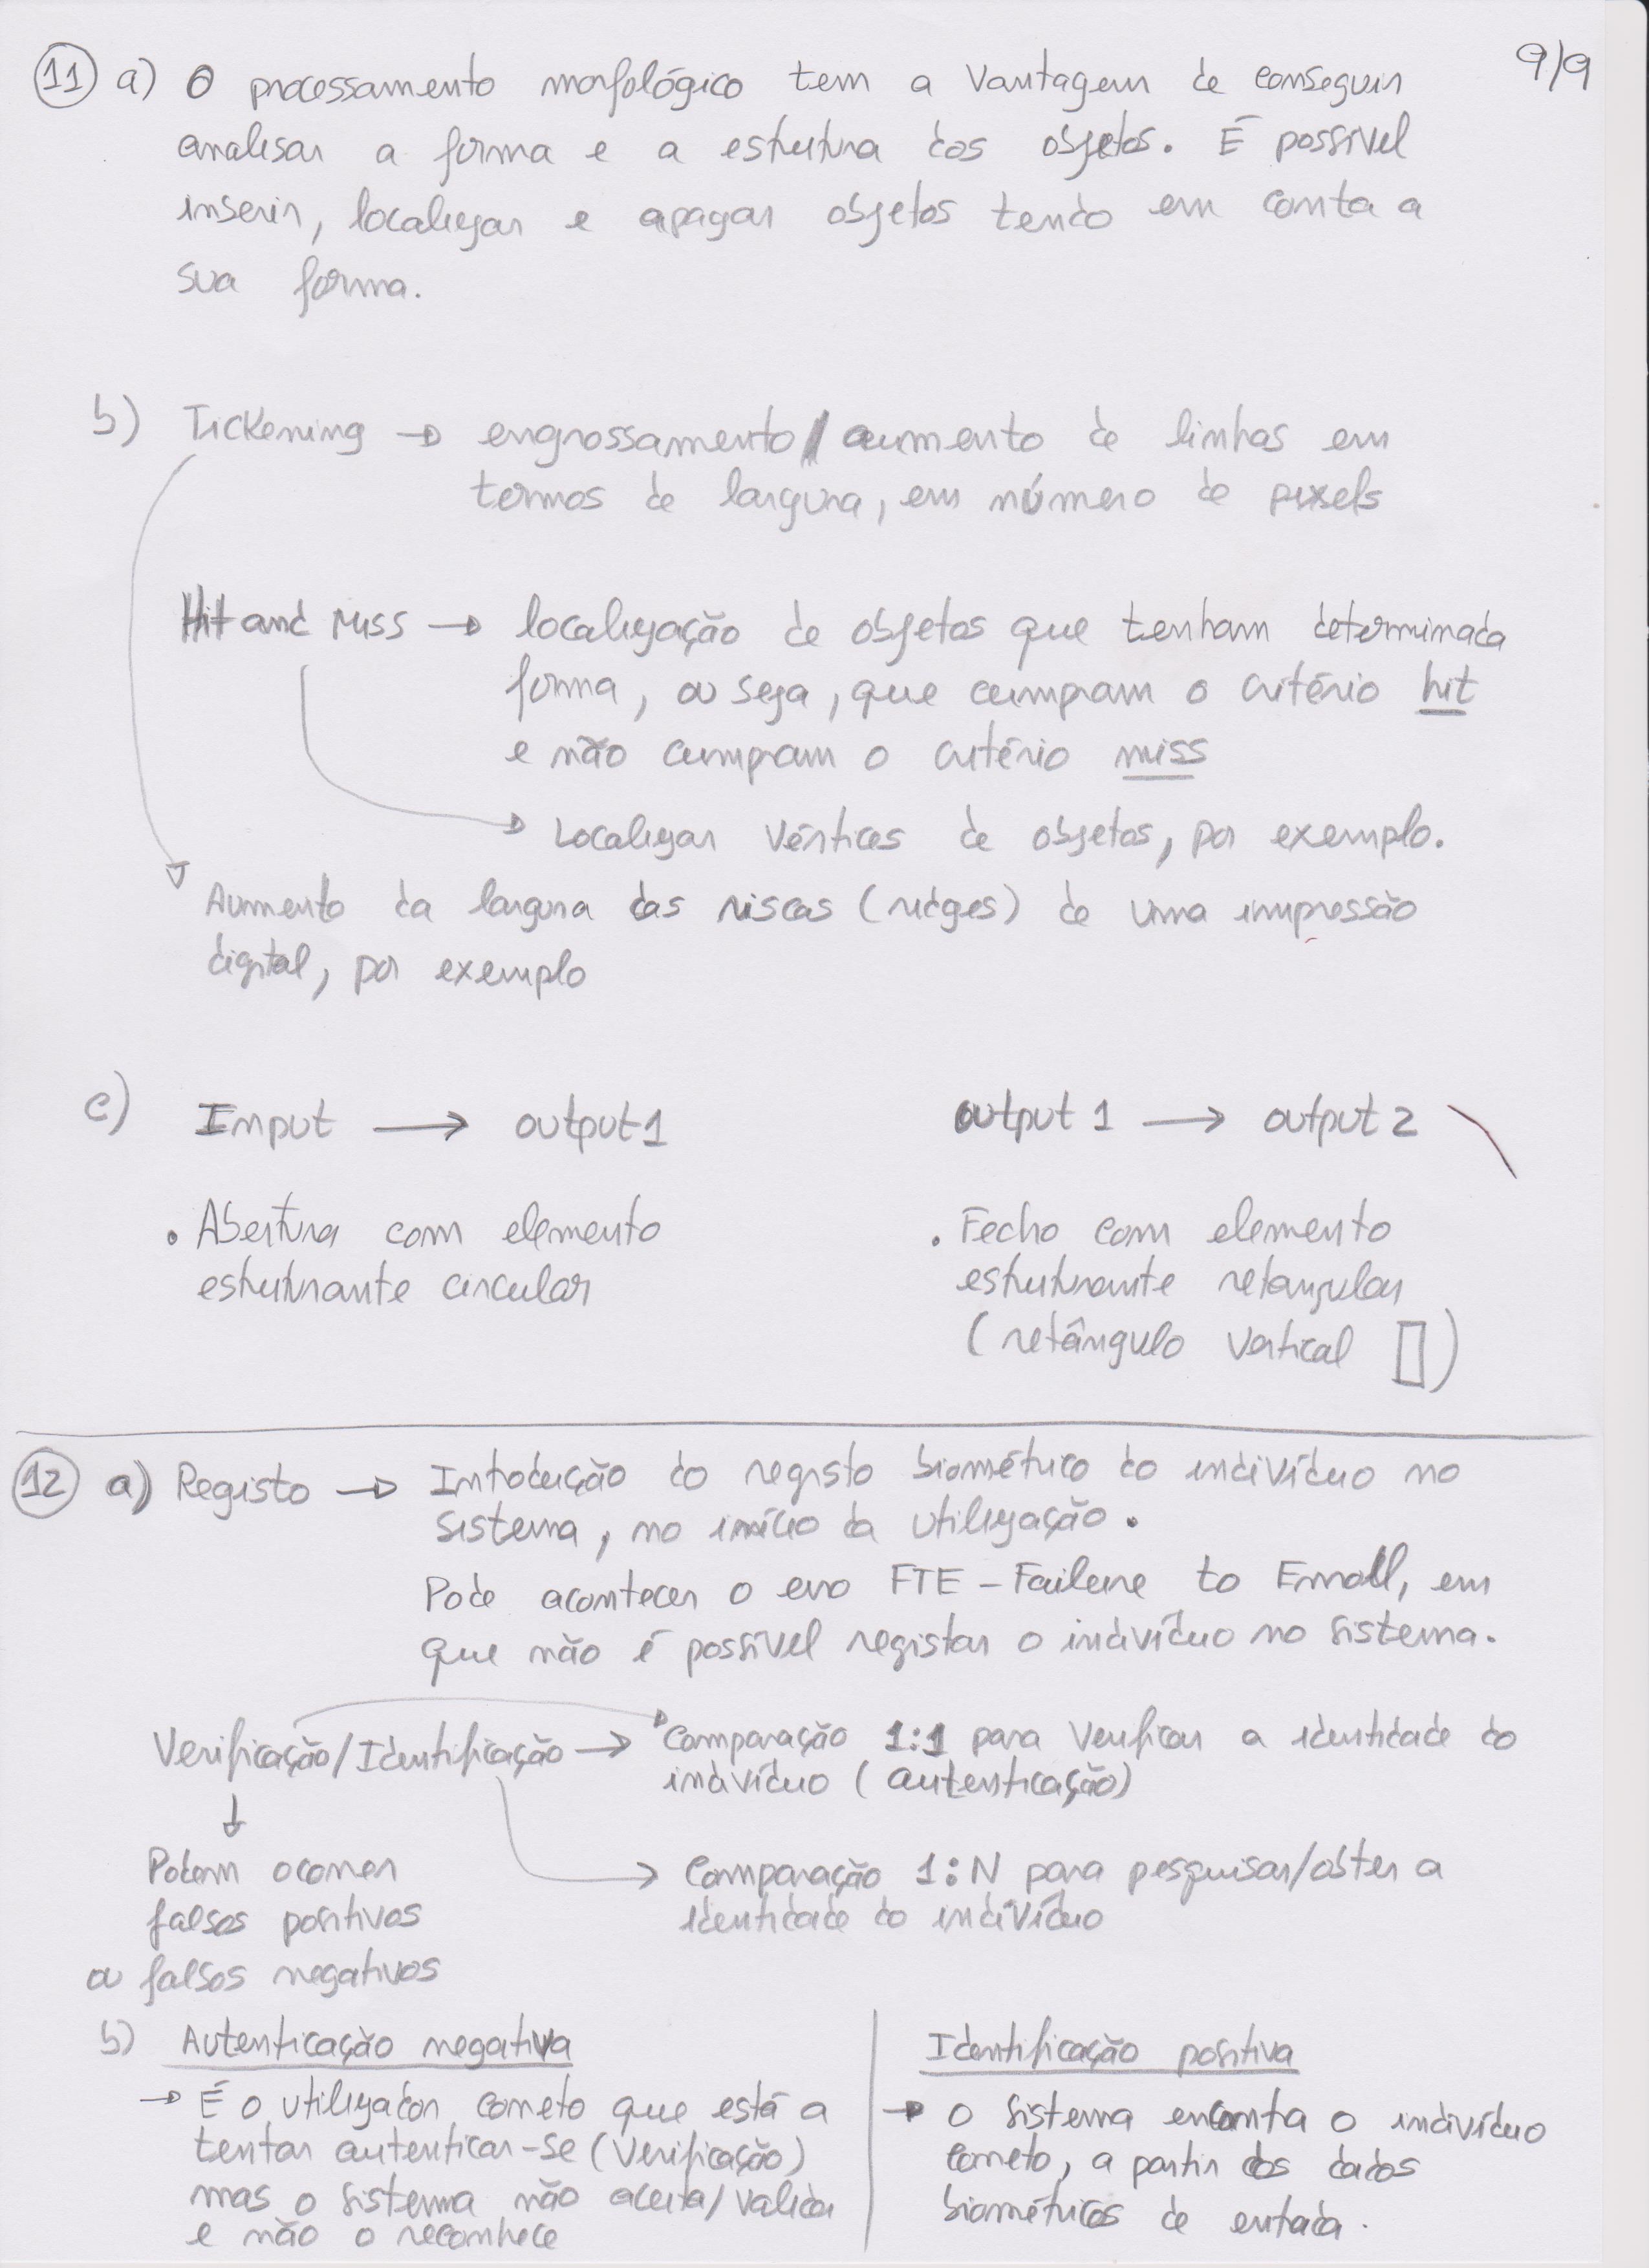 9/9
11 a) O processamento morfológico tem a vantagem de conseguir
analisar a forma e a estrutura dos objetos. É possível
inserir, localizar e apagar objetos tendo em conta a
sua forma.
b) Tickening → engrossamento / aumento de linhas em
termos de largura, em número de pixels
Hit and Miss → localização de objetos que tenham determinada
forma, ou seja, que cumpram o critério hit
e não cumpram o critério miss
→ Localizar vértices de objetos, por exemplo.
Aumento da largura das riscas (ridges) de uma impressão
digital, por exemplo
c) Input → output1
• Abertura com elemento
estruturante circular
output 1 → output 2
• Fecho com elemento
estruturante retangular
(retângulo vertical ▯)
12 a) Registo → Introdução do registo biométrico do indivíduo no
sistema, no início da utilização.
Pode acontecer o erro FTE - Failure to Enroll, em
que não é possível registar o indivíduo no sistema.
Verificação/Identificação → Comparação 1:1 para verificar a identidade do
indivíduo (autenticação)
→ Comparação 1:N para pesquisar/obter a
identidade do indivíduo
↓
Podem ocorrer
falsos positivos
ou falsos negativos
b) Autenticação negativa
→ É o utilizador correto que está a
tentar autenticar-se (verificação)
mas o sistema não aceita/valida
e não o reconhece
Identificação positiva
→ O sistema encontra o indivíduo
correto, a partir dos dados
biométricos de entrada.